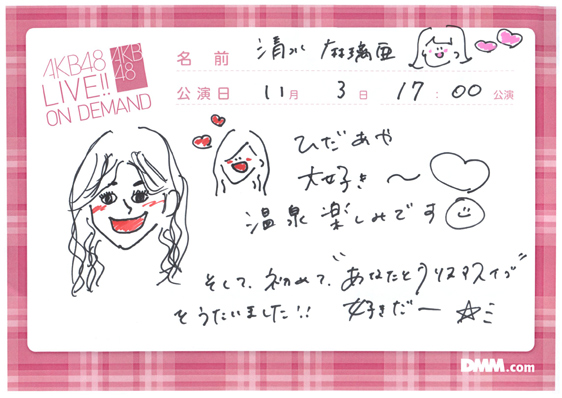 AKB48
LIVE!!
ON DEMAND
AKB
48
名前 清水麻璃亜
公演日 11月 3日 17:00 公演
ひだあや
大好き〜
温泉楽しみです
そして、初めて、"あなたとクリスマスイブ"
をうたいました!! 好きだー
DMM.com